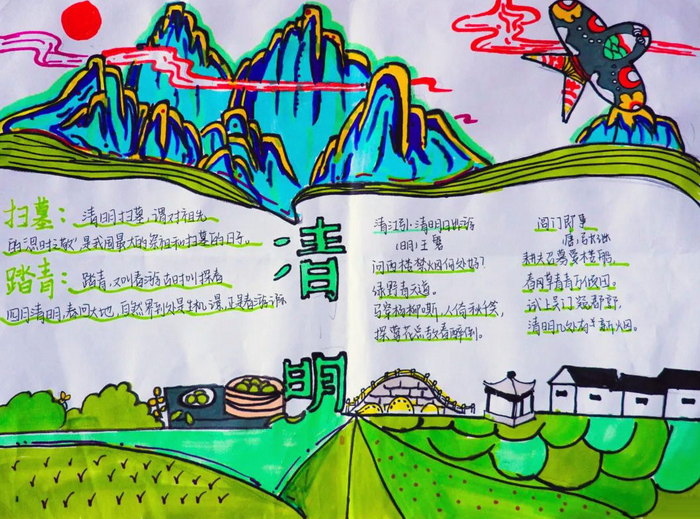 扫墓：清明扫墓，谓对祖先
的"思时之敬"，是我国最大的祭祖和扫墓的日子。
踏青：踏青，又叫春游，古时叫探春
四月清明，春回大地，自然界到处是生机，正是春游之际
清明
清江引·清明日出游
(明)王磐
问西楼禁烟何处好？
绿野青天道。
马穿杨柳嘶，人倚秋千笑，
探莺花总教春醉倒。
阊门即事
唐·张继
耕夫召募楼船，
春草青青万顷田。
试上吴门窥郡郭，
清明几处有新烟。